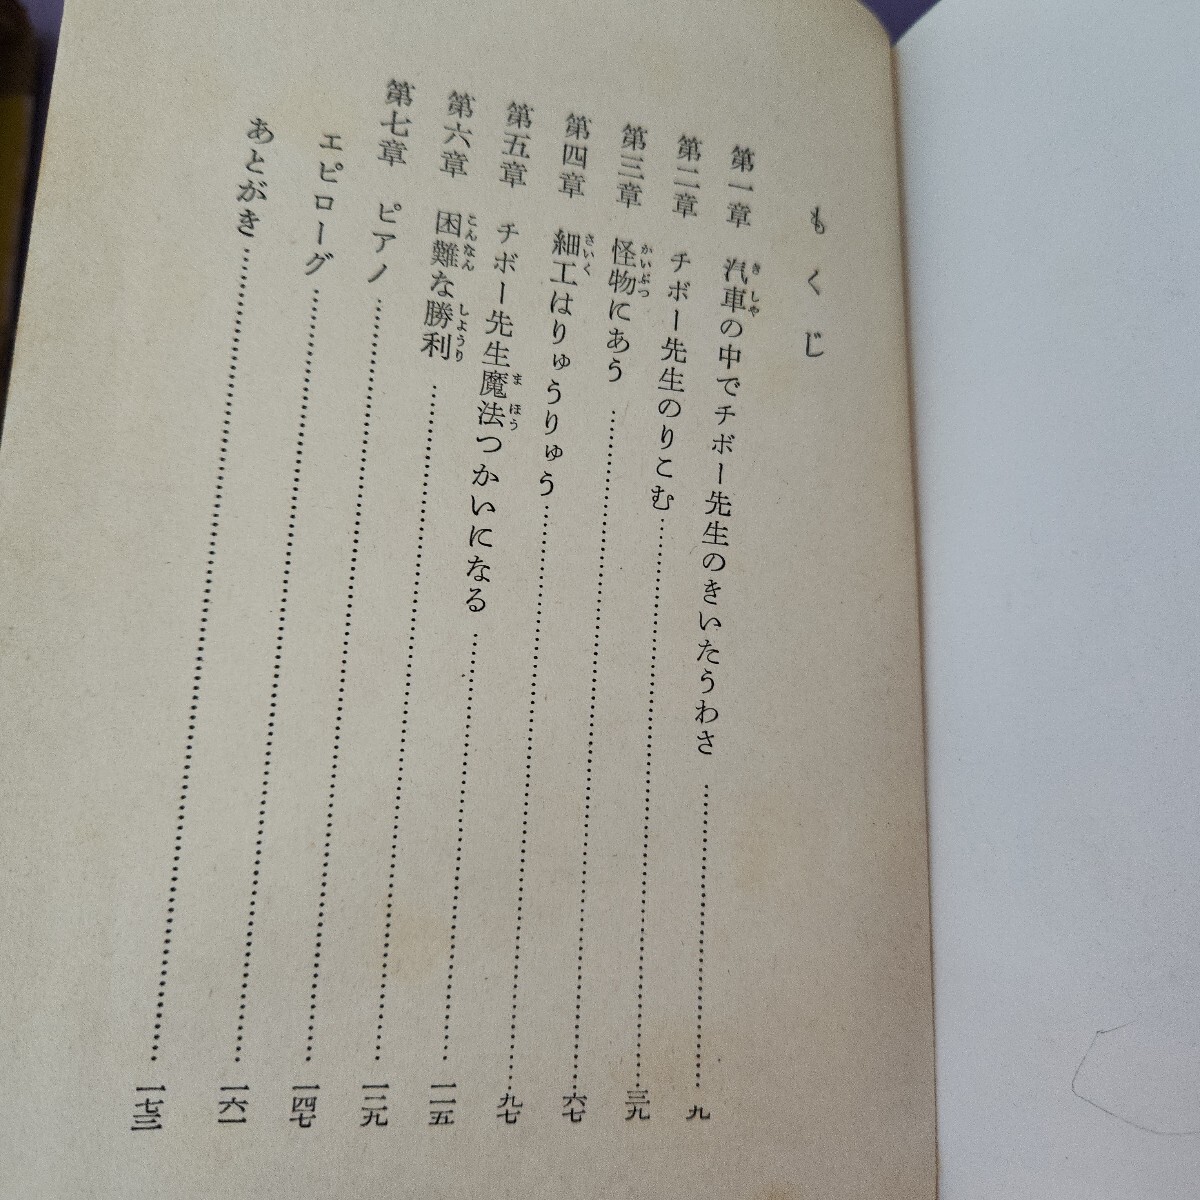 もくじ
きしや
第一章 汽車の中でチボー先生のきいたうわさ……九
第二章 チボー先生のりこむ……三九
かいぶつ
第三章 怪物にあう……六七
さいく
第四章 細工はりゅうりゅう……九七
まほう
第五章 チボー先生魔法つかいになる……一一五
こんなん しようり
第六章 困難な勝利……一二九
第七章 ピアノ……一四七
エピローグ……一六一
あとがき……一七三